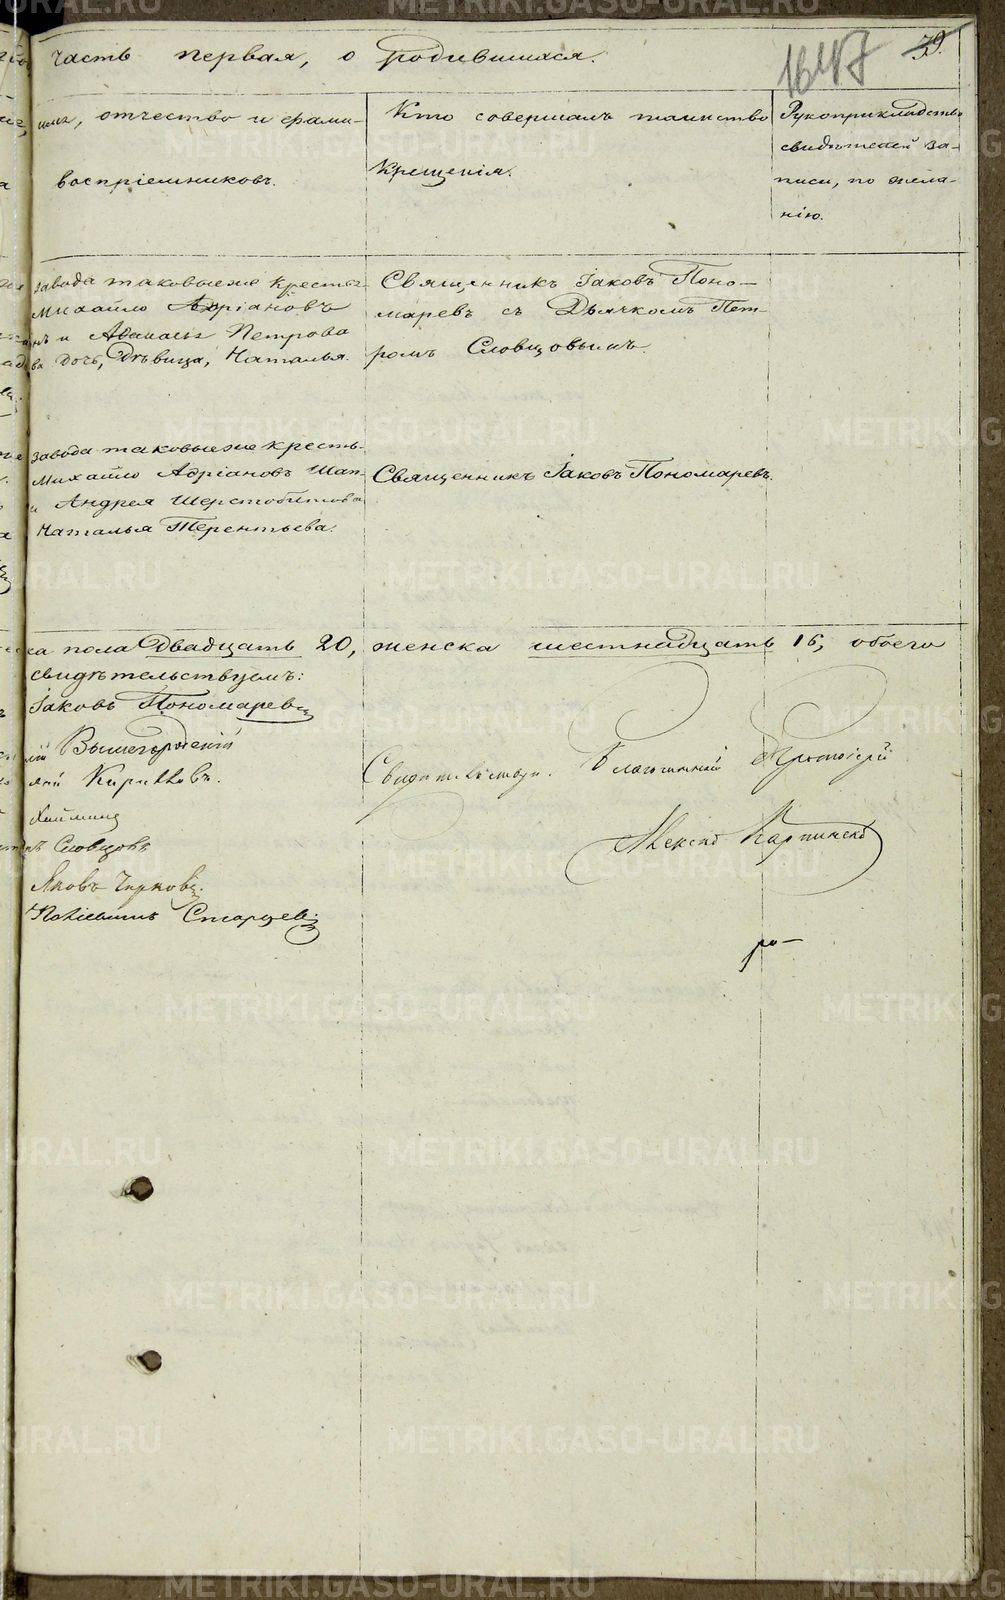 Часть первая, о родившихся.
1647
39.
имя, отчество и фами-
воспріемниковъ.
Кто совершалъ таинство
Крещенія.
Рукоприкладство
свидѣтелей за-
писи, по жела-
нію.
завода таковые же кресть-
Михайло Адріановъ
и Аѳанасья Петрова
дочь, дѣвица, Наталья.
Священникъ Іаковъ Поно-
маревъ съ Дьячкомъ Пет-
ромъ Словцовымъ.
завода таковые же кресть-
Михайло Адріановъ Шап-
и Андрея Шерстобитова
Наталья Терентьева.
Священникъ Іаковъ Пономаревъ.
ка пола двадцать 20, женска шестнадцать 16, обоего
свидѣтельствуемъ:
Іаковъ Пономаревъ
Вышегородскій
Кирилловъ.
Словцовъ
Яковъ Чирковъ.
Старцевъ
Благочинный Протоіерей
Александ Карпинскій
METRIKI.GASO-URAL.RU